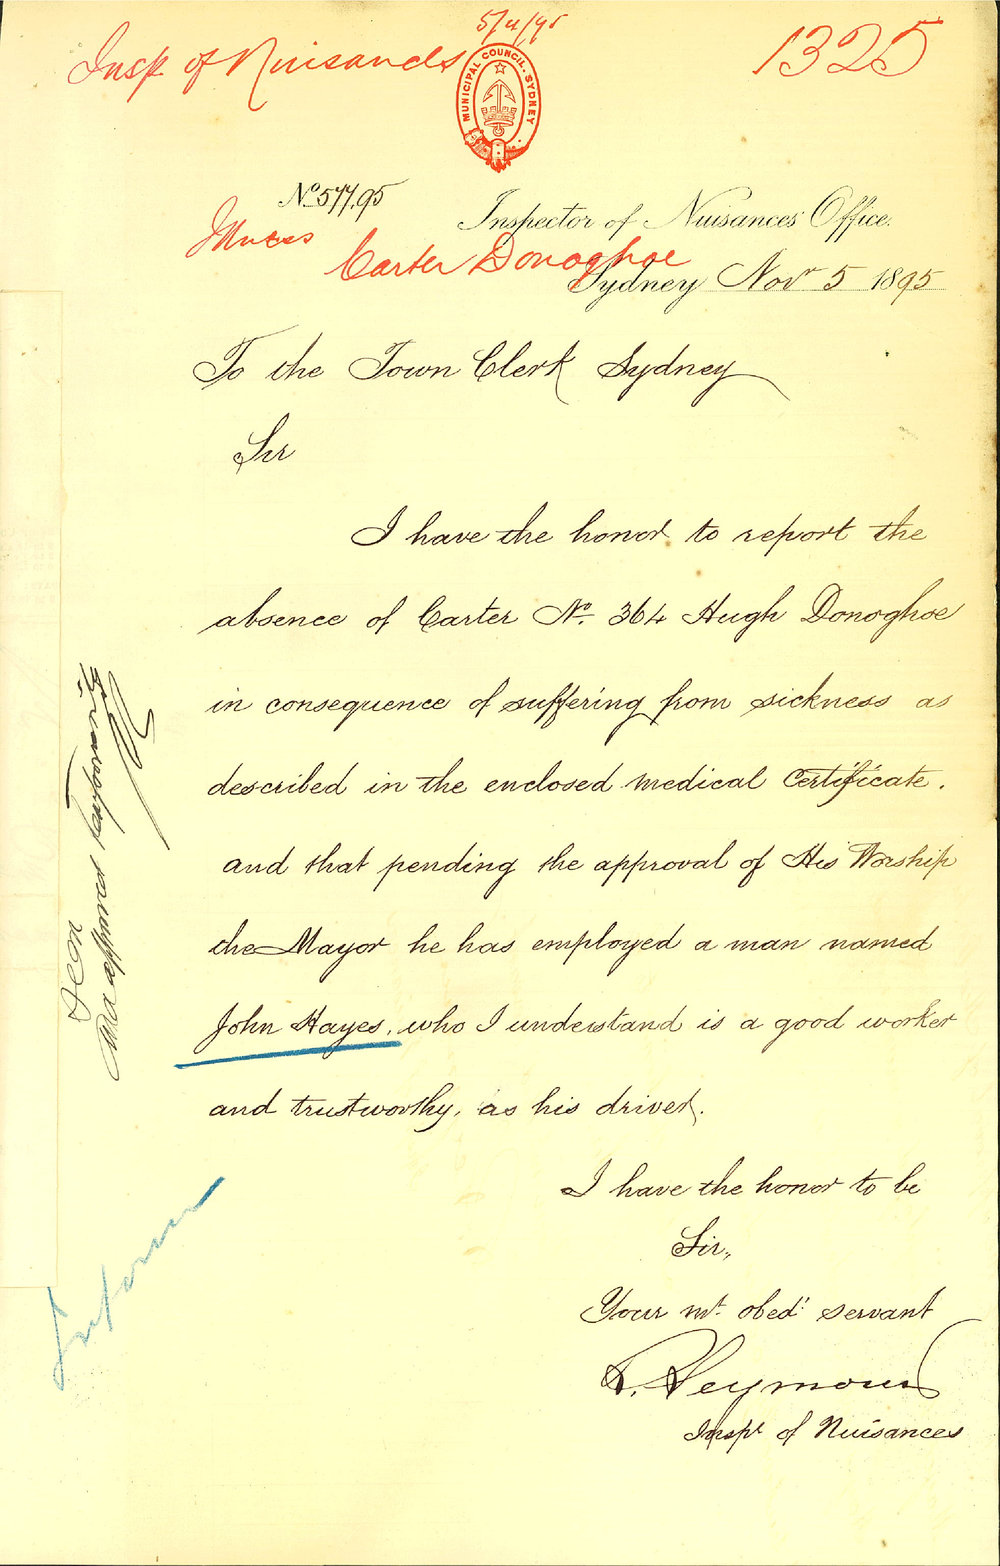 5/11/95
Insp of Nuisances
1325
MUNICIPAL COUNCIL. SYDNEY
No. 577.95
Inspector of Nuisances Office.
Carter Donoghoe
Sydney Nov 5 1895
To the Town Clerk Sydney
Sir
I have the honor to report the
absence of Carter No. 364 Hugh Donoghoe
in consequence of suffering from sickness as
described in the enclosed medical Certificate.
and that pending the approval of His Worship
the Mayor he has employed a man named
John Hayes, who I understand is a good worker
and trustworthy, as his driver.
I have the honor to be
Sir,
Your mt. obedt. servant
R. Seymour
Inspr of Nuisances
Seen
and approved temporarily
Inform